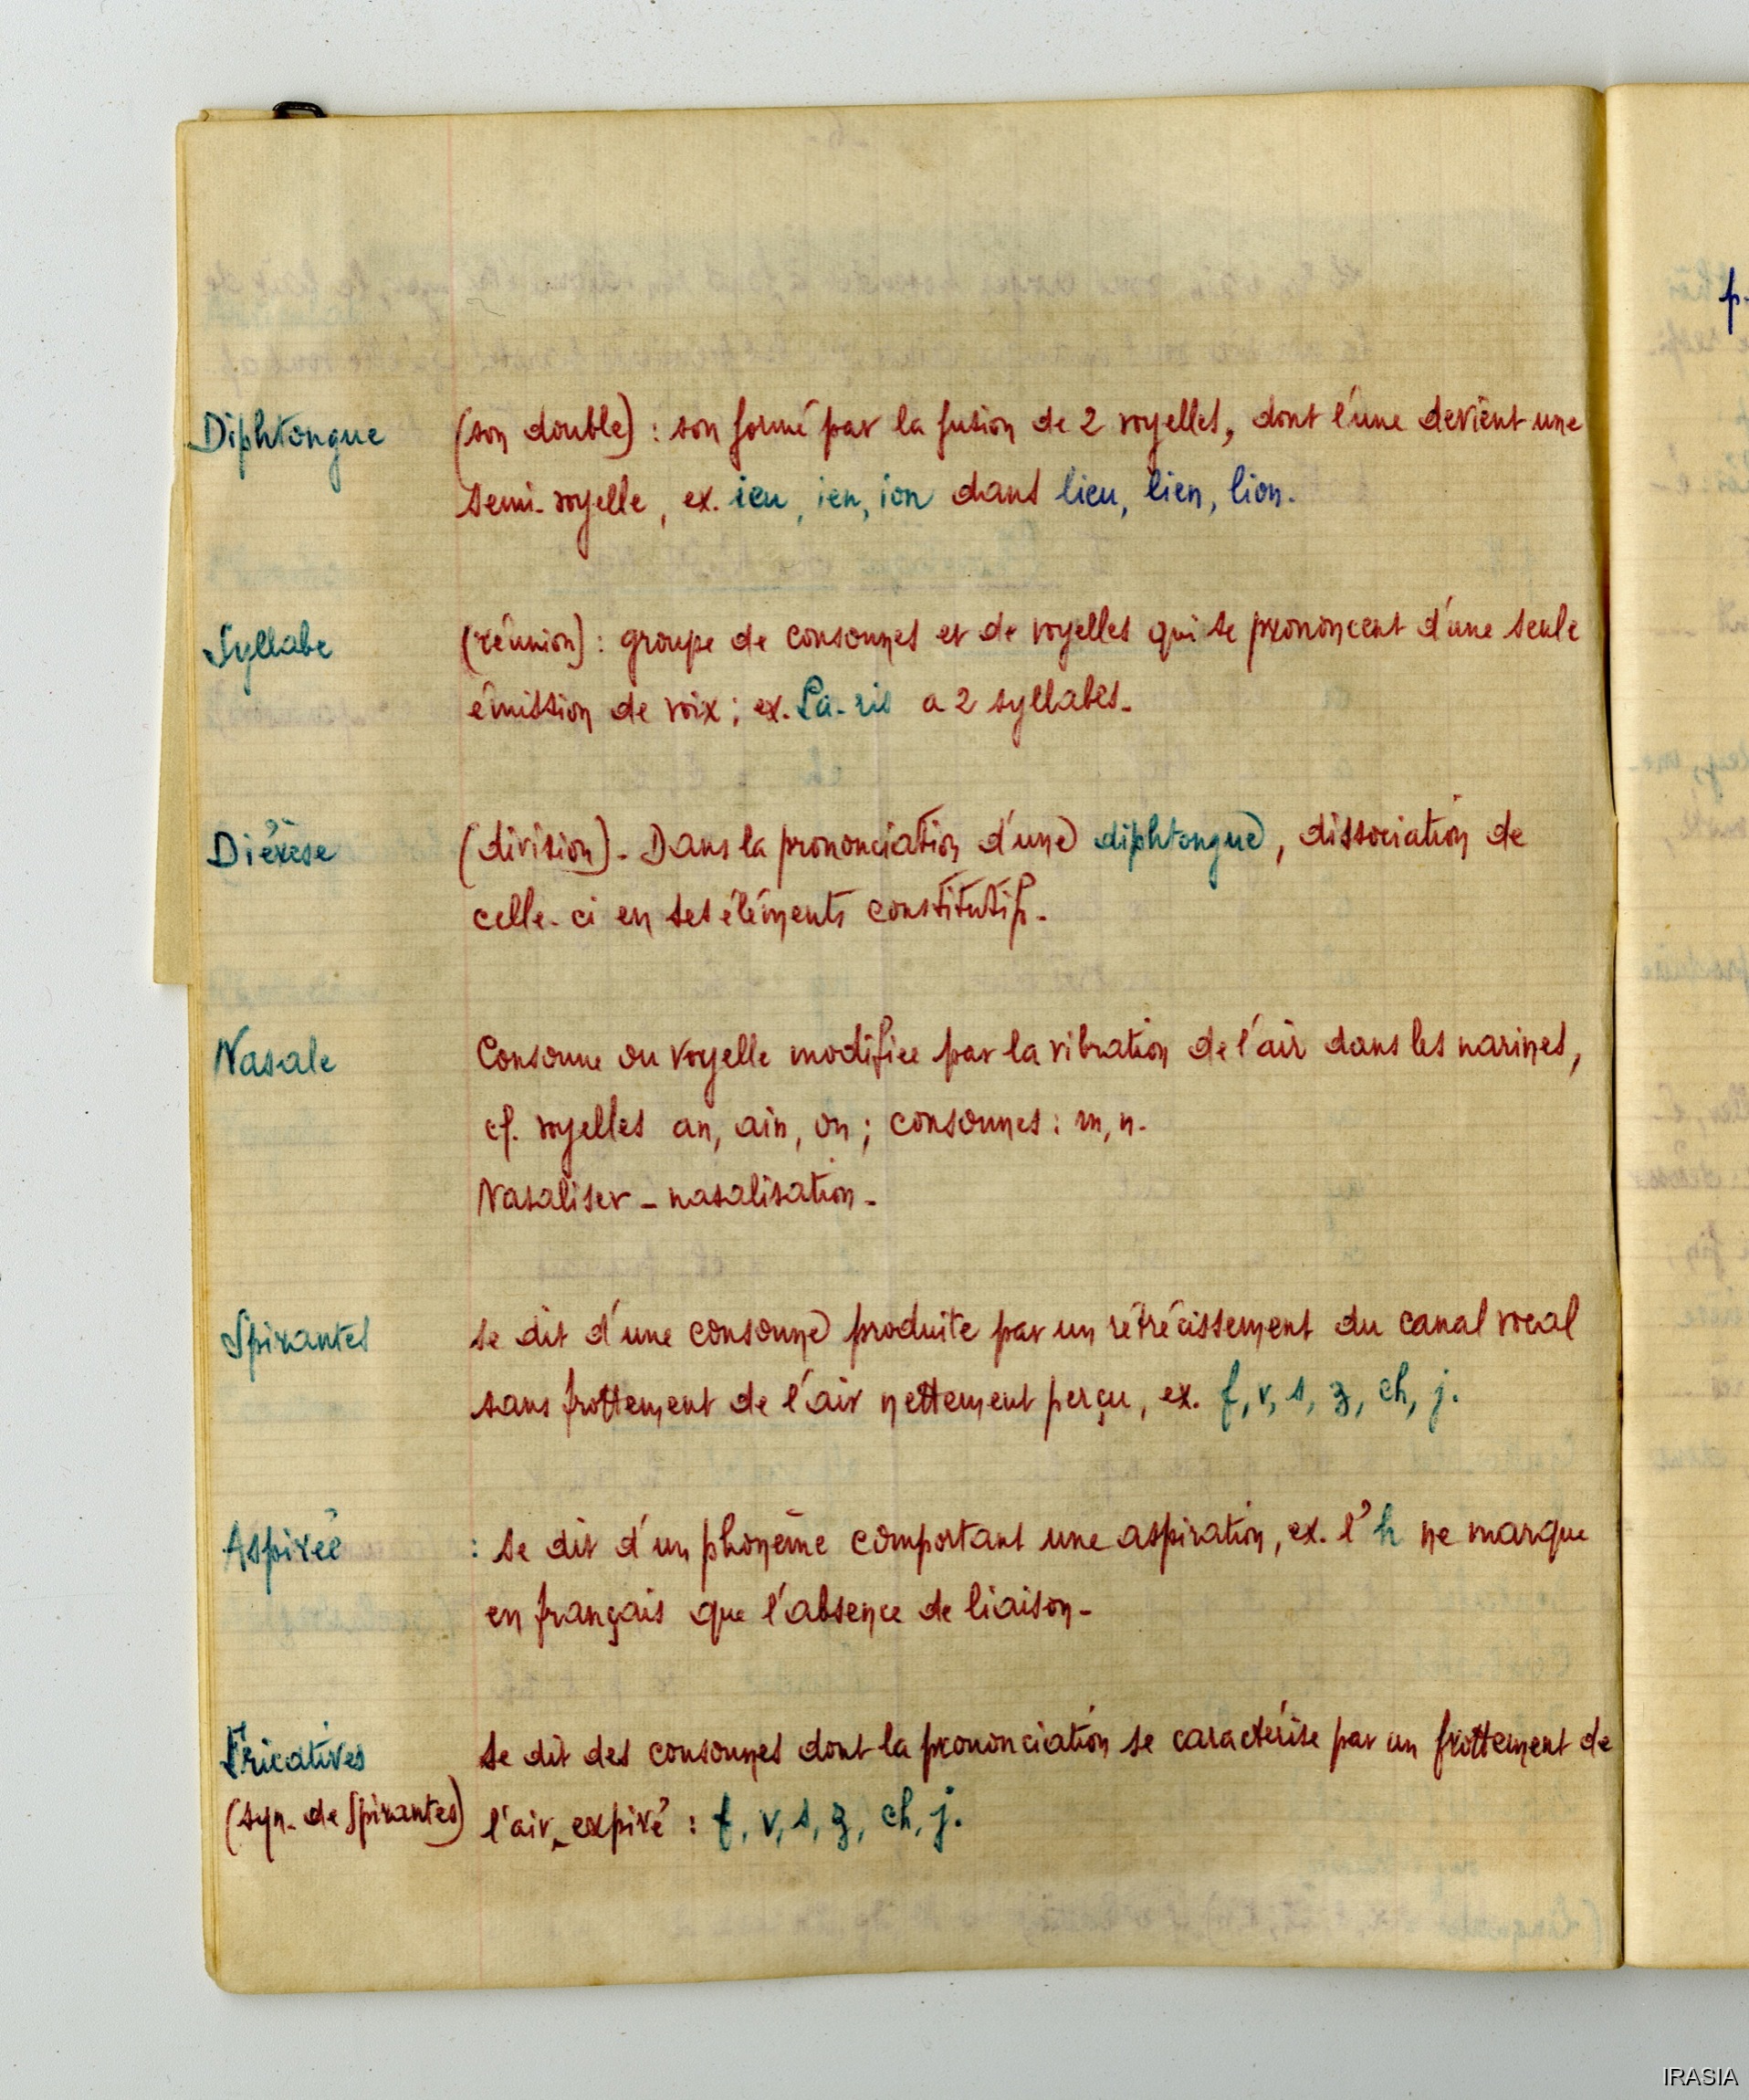 Diphtongue (son double) : son formé par la fusion de 2 voyelles, dont l'une devient une
semi-voyelle, ex. ieu, ien, ion dans lieu, lien, lion.
Syllabe (réunion) : groupe de consonnes et de voyelles qui se prononcent d'une seule
émission de voix ; ex. Pa-ris a 2 syllabes.
Diérèse (division) - Dans la prononciation d'une diphtongue, dissociation de
celle-ci en ses éléments constitutifs.
Nasale Consonne ou voyelle modifiée par la vibration de l'air dans les narines,
cf. voyelles an, ain, on ; consonnes : m, n.
Nasaliser - nasalisation -
Spirantes se dit d'une consonne produite par un rétrécissement du canal vocal
sans frottement de l'air nettement perçu, ex. f, v, s, z, ch, j.
Aspirée : se dit d'un phonème comportant une aspiration, ex. l'h ne marque
en français que l'absence de liaison -
Fricatives se dit des consonnes dont la prononciation se caractérise par un frottement de
(syn. de spirantes) l'air expiré : f, v, s, z, ch, j.
p.
IRASIA